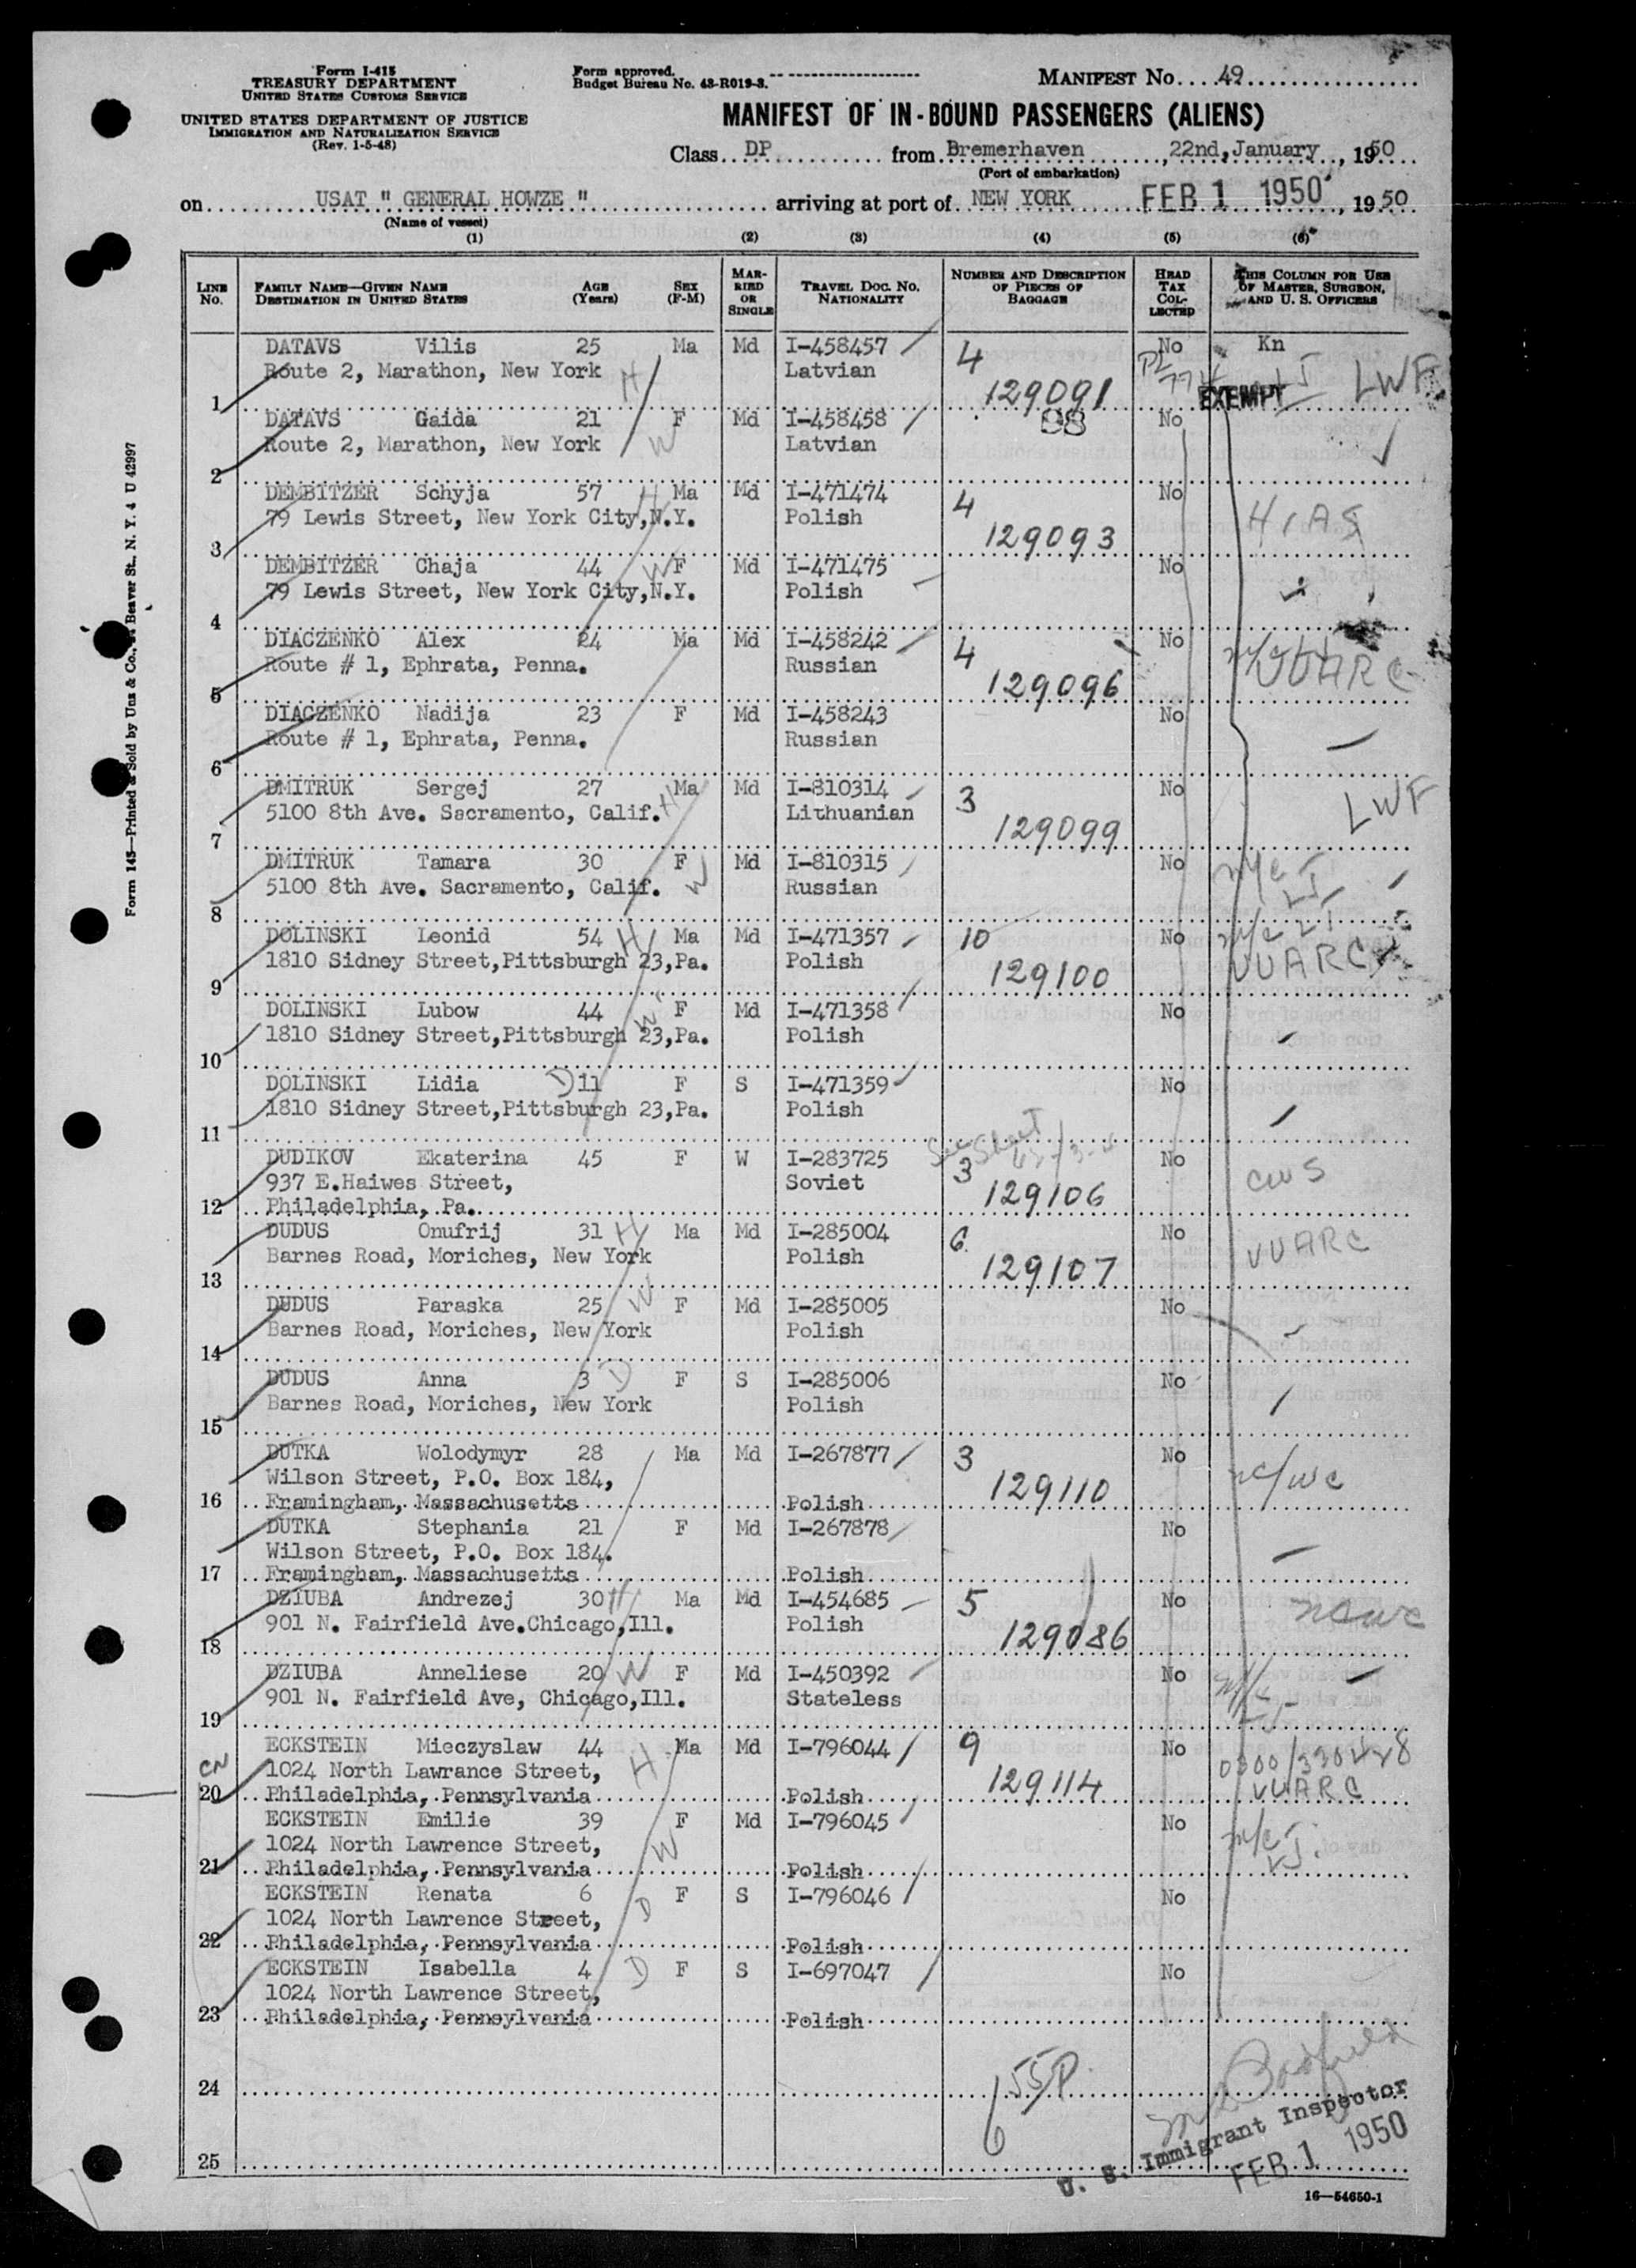 Form I-415
TREASURY DEPARTMENT
UNITED STATES CUSTOMS SERVICE
UNITED STATES DEPARTMENT OF JUSTICE
IMMIGRATION AND NATURALIZATION SERVICE
(Rev. 1-5-48)
Form approved.
Budget Bureau No. 43-R019-3.
MANIFEST No. 49
MANIFEST OF IN-BOUND PASSENGERS (ALIENS)
Class DP from Bremerhaven, 22nd, January, 1950
(Port of embarkation)
on USAT " GENERAL HOWZE " arriving at port of NEW YORK FEB 1 1950, 1950
(Name of vessel)
(1) (2) (3) (4) (5) (6)
LINE No. FAMILY NAME—GIVEN NAME DESTINATION IN UNITED STATES AGE (Years) SEX (F-M) MARRIED OR SINGLE TRAVEL DOC. NO. NATIONALITY NUMBER AND DESCRIPTION OF PIECES OF BAGGAGE HEAD TAX COLLECTED THIS COLUMN FOR USE OF MASTER, SURGEON, AND U. S. OFFICERS
DATAVS Vilis 25 Ma Md I-458457 4 No Kn
Route 2, Marathon, New York H Latvian LWF
1 129091 EXEMPT
DATAVS Gaida 21 F Md I-458458 98 No
Route 2, Marathon, New York W Latvian
2
DEMBITZER Schyja 57 H Ma Md I-471474 4 No
79 Lewis Street, New York City,N.Y. Polish HIAS
3 129093
DEMBITZER Chaja 44 W F Md I-471475 No
79 Lewis Street, New York City,N.Y. Polish
4
DIACZENKO Alex 24 Ma Md I-458242 4 No
Route # 1, Ephrata, Penna. Russian UUARC
5 129096
DIACZENKO Nadija 23 F Md I-458243 No
Route # 1, Ephrata, Penna. Russian
6
DMITRUK Sergej 27 H Ma Md I-810314 3 No
5100 8th Ave. Sacramento, Calif. Lithuanian LWF
7 129099
DMITRUK Tamara 30 F Md I-810315 No
5100 8th Ave. Sacramento, Calif. W Russian
8
DOLINSKI Leonid 54 H Ma Md I-471357 10 No
1810 Sidney Street,Pittsburgh 23,Pa. Polish UUARC
9 129100
DOLINSKI Lubow 44 W F Md I-471358 No
1810 Sidney Street,Pittsburgh 23,Pa. Polish
10
DOLINSKI Lidia D 11 F S I-471359 No
1810 Sidney Street,Pittsburgh 23,Pa. Polish
11
See Sheet
DUDIKOV Ekaterina 45 F W I-283725 3 No
937 E.Haiwes Street, Soviet CWS
12 Philadelphia, Pa. 129106
DUDUS Onufrij 31 H Ma Md I-285004 6 No
Barnes Road, Moriches, New York Polish UUARC
13 129107
DUDUS Paraska 25 W F Md I-285005 No
Barnes Road, Moriches, New York Polish
14
DUDUS Anna 3 D F S I-285006 No
Barnes Road, Moriches, New York Polish
15
DUTKA Wolodymyr 28 Ma Md I-267877 3 No
Wilson Street, P.O. Box 184, nc/wc
16 Framingham, Massachusetts Polish 129110
DUTKA Stephania 21 F Md I-267878 No
Wilson Street, P.O. Box 184.
17 Framingham, Massachusetts Polish
DZIUBA Andrezej 30 H Ma Md I-454685 5 No
901 N. Fairfield Ave.Chicago,Ill. Polish ncwc
18 129086
DZIUBA Anneliese 20 W F Md I-450392 No
901 N. Fairfield Ave, Chicago,Ill. Stateless
19
ECKSTEIN Mieczyslaw 44 H Ma Md I-796044 9 No
CN 1024 North Lawrance Street, 0300/330428
20 Philadelphia, Pennsylvania Polish 129114 UUARC
ECKSTEIN Emilie 39 F Md I-796045 No
1024 North Lawrence Street, W
21 Philadelphia, Pennsylvania Polish
ECKSTEIN Renata 6 D F S I-796046 No
1024 North Lawrence Street,
22 Philadelphia, Pennsylvania Polish
ECKSTEIN Isabella 4 D F S I-697047 No
1024 North Lawrence Street,
23 Philadelphia, Pennsylvania Polish
24
U. S. Immigrant Inspector
FEB 1 1950
25
16—54650-1
Form 145—Printed & Sold by Unz & Co., Beaver St., N. Y. 4 U 42997